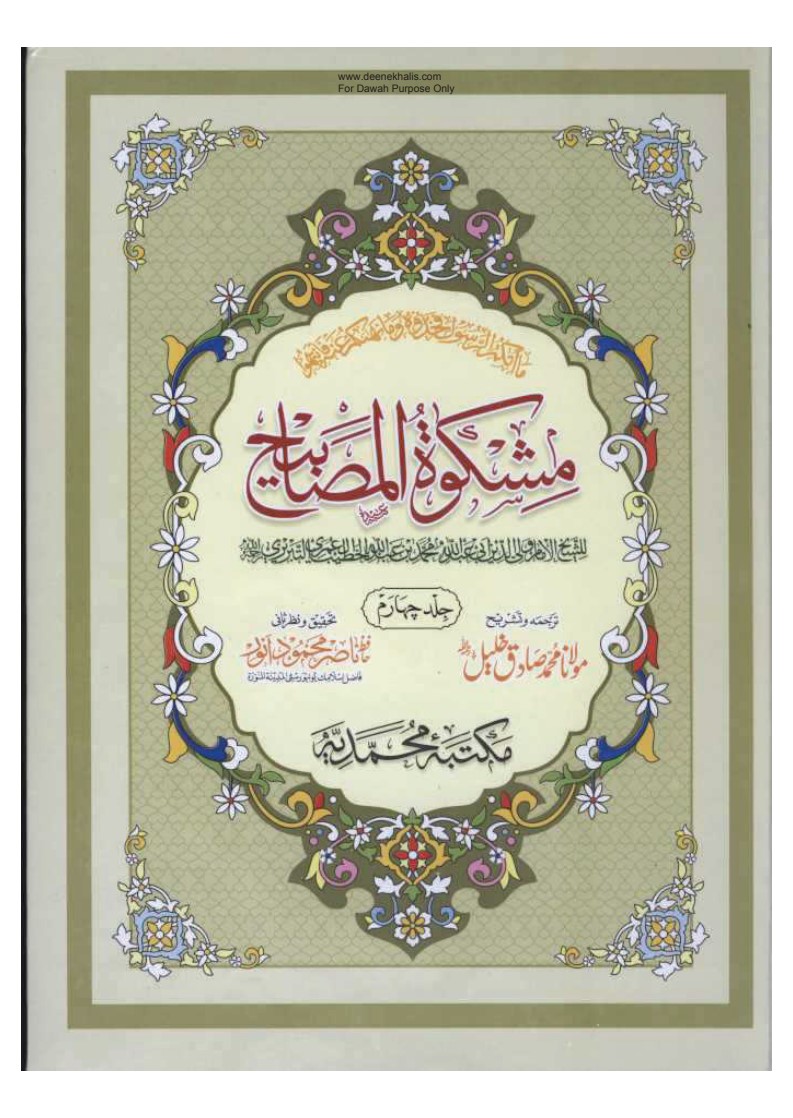 www.deenekhalis.com
For Dawah Purpose Only
ما آتٰکم الرسول فخذوہ وما نھٰکم عنہ فانتھوا
مِشکوٰۃُ المَصَابیح
للشیخ الامام ولی الدین ابی عبداللہ محمد بن عبداللہ الخطیب العمری التبریزی
جلد چہارم
ترجمہ وتشریح
مولانا محمد صادق خلیل
تحقیق و نظر ثانی
حافظ ناصر محمود انور
فاضل اسلامک یونیورسٹی المدینۃ المنورۃ
مکتبۂ محمدیہ